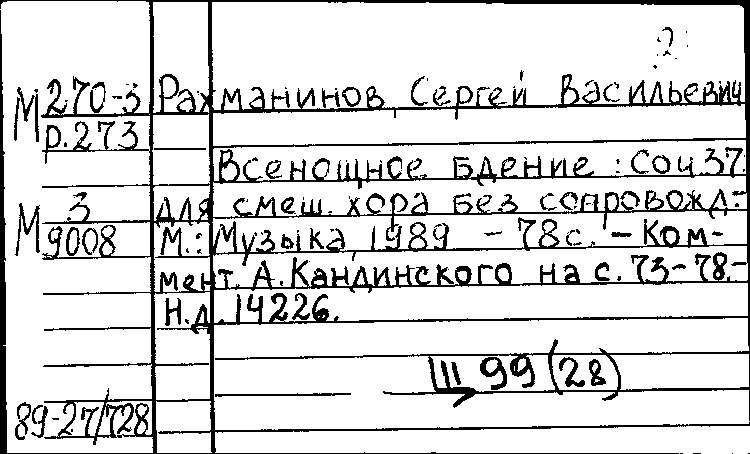 2
М 270-3 Рахманинов, Сергей Васильевич
р.273
Всенощное бдение : Соч.37.
М 3 для смеш. хора без сопровожд.-
9008 М.: Музыка, 1989 - 78с. - Ком-
мент. А. Кандинского на с. 73-78.-
Н.д. 14226.
Щ 99 (28)
89-27/728